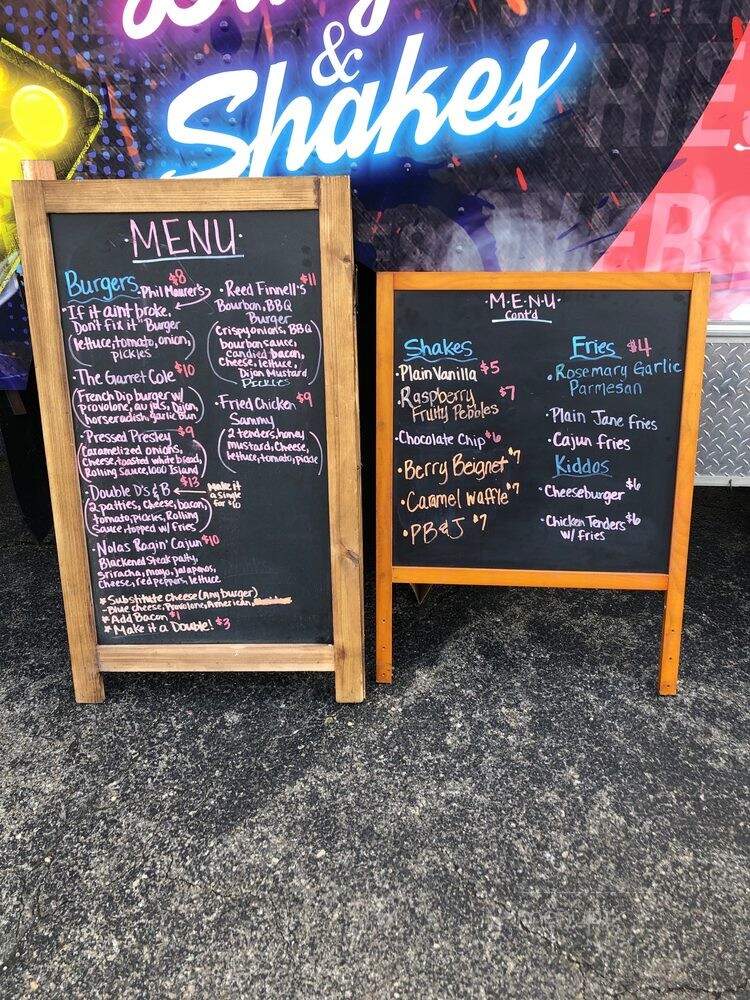 &
Shakes
MENU
Burgers
$8
Phil Maurer's
"If it aint broke,
Don't Fix it" Burger
(lettuce, tomato, onion,
pickles)
The Garret Cole $10
(French Dip burger w/
provolone, au jus, Dijon,
horseradish, garlic bun
Pressed Presley $9
(Caramelized onions,
Cheese, toasted white bread,
Rolling Sauce, 1000 Island)
Double D's & B $13
Make it
a single
for $10
(2 patties, cheese, bacon,
tomato, pickles, Rolling
Sauce, topped w/ fries)
Nolas Ragin' Cajun $10
Blackened Steak patty,
sriracha, mayo, jalapenos,
cheese, red peppers, lettuce
* Substitute Cheese (Any burger)
- Blue cheese, Provolone, American,
* Add Bacon $1
* Make it a Double! $3
$11
Reed Finnell's
Bourbon, BBQ
Burger
(Crispy onions, BBQ
bourbon sauce,
candied bacon,
Cheese, lettuce,
Dijon Mustard
Pickles
Fried Chicken $9
Sammy
(2 tenders, honey
mustard, Cheese,
lettuce, tomato, pickle)
M·E·N·U
Cont'd
Shakes
Plain Vanilla $5
Raspberry $7
Fruity Pebbles
Chocolate Chip $6
Berry Beignet $7
Caramel Waffle $7
PB&J $7
Fries $4
Rosemary Garlic
Parmesan
Plain Jane Fries
Cajun fries
Kiddos
Cheeseburger $6
Chicken Tenders $6
w/ fries